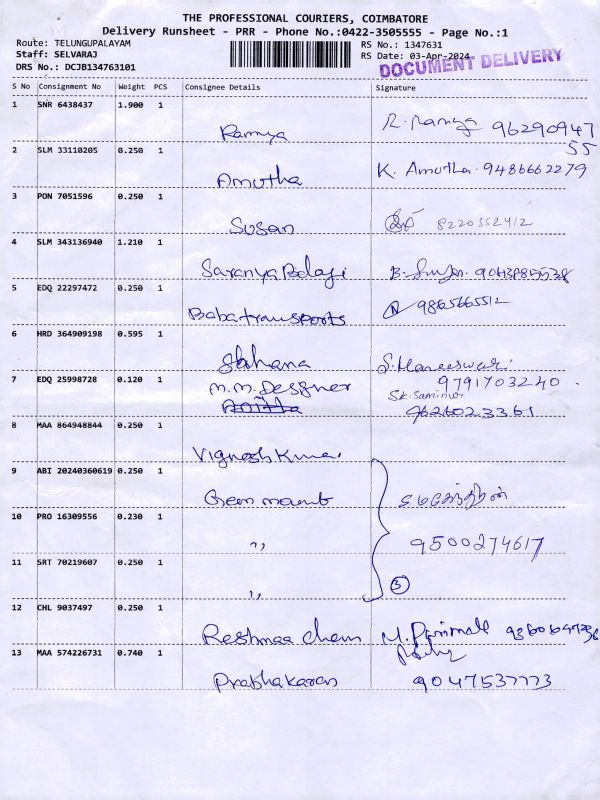 THE PROFESSIONAL COURIERS, COIMBATORE
Delivery Runsheet - PRR - Phone No.:0422-3505555 - Page No.:1
Route: TELUNGUPALAYAM
Staff: SELVARAJ
DRS No.: DCJB134763101
RS No.: 1347631
RS Date: 03-Apr-2024
DOCUMENT DELIVERY
S No Consignment No Weight PCS Consignee Details Signature
1 SNR 6438437 1.900 1
Ramya R. Ramya 96290947
55
2 SLM 33110205 0.250 1
Amutha K. Amutha 9486662279
3 PON 7051596 0.250 1
Susan 8220552412
4 SLM 343136940 1.210 1
Saranya Balaji B.
5 EDQ 22297472 0.250 1
Baba transports 9865665512
6 HRD 364909198 0.595 1
Shahana
7 EDQ 25998728 0.120 1
M.M. Designer 9791703240
9626023361
8 MAA 864948844 0.250 1
Vignesh Kumar
9 ABI 20240360619 0.250 1
Green
10 PRO 16309556 0.230 1
,, 9500274617
11 SRT 70219607 0.250 1
,, 3
12 CHL 9037497 0.250 1
Reshmaa Chem M.
13 MAA 574226731 0.740 1
Prabhakaran 9047537773